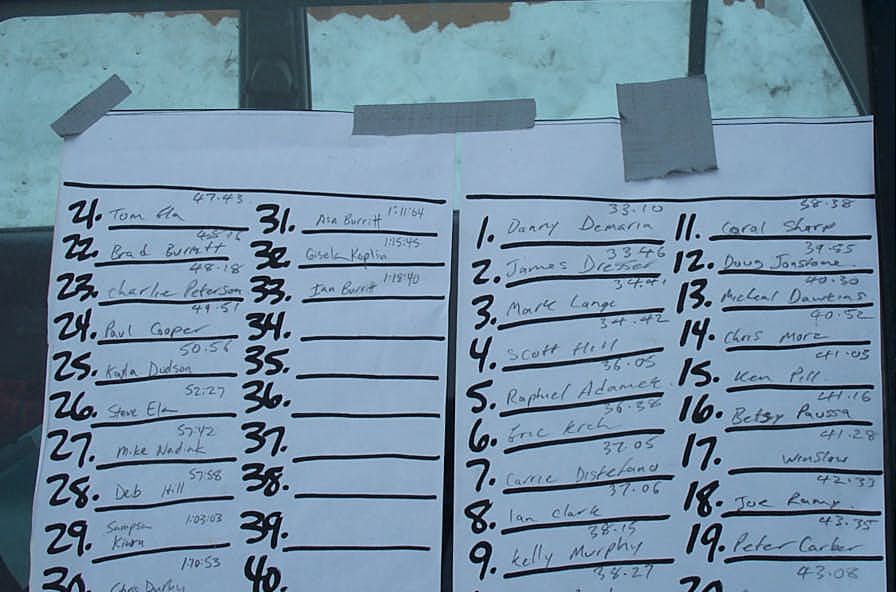 47.43
21. Tom Ela
22. Brad Burnett
48.18
23. Charlie Peterson
49.51
24. Paul Cooper
50.56
25. Kayla Dudson
52:27
26. Steve Ela
57:42
27. Mike Nadiak
57:58
28. Deb Hill
1:03:03
29. Sampson
Kiara
1:10:53
30. Chris Darby
1:11:04
31. Asa Burritt
1:15:45
32. Gisela Koplin
1:18:40
33. Ian Burritt
34.
35.
36.
37.
38.
39.
40.
33.10
1. Danny Demaria
33 46
2. James Dresser
34.41
3. Mark Lange
34.42
4. Scott Hill
36.05
5. Raphael Adamek
36.38
6. Eric Krch
37.05
7. Carrie Distefano
37.06
8. Ian Clark
38.15
9. Kelly Murphy
38.27
38.38
11. Caral Sharp
39.55
12. Doug Jonstone
40.30
13. Micheal Dawkins
40.52
14. Chris More
41.05
15. Ken Pill
41.16
16. Betsy Paussa
41.28
17. Winslow
42.33
18. Joe Ramy
43.35
19. Peter Carber
43.08
20